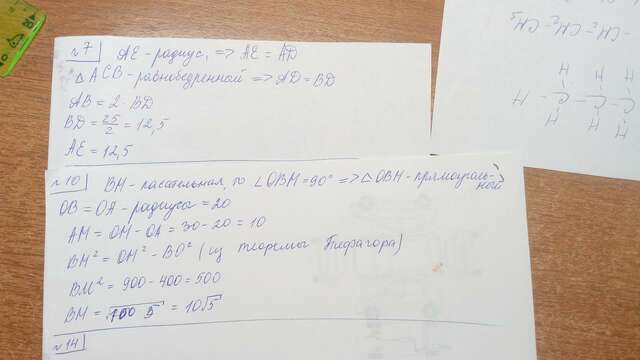 №7 AE - радиус, => AE = AD
△ACB - равнобедренной => AD = BD
AB = 2 · BD
BD = 25/2 = 12,5
AE = 12,5
№10 BM - касательная, то ∠OBM = 90° => △OBM - прямоугольный
OB = OA - радиусы = 20
AM = OM - OA = 30 - 20 = 10
BM² = OM² - BO² (из теоремы Пифагора)
BM² = 900 - 400 = 500
BM = √100 5 = 10√5
№14
- CH₂ - CH₂ - CH₃
H H
H - C - C -
H H